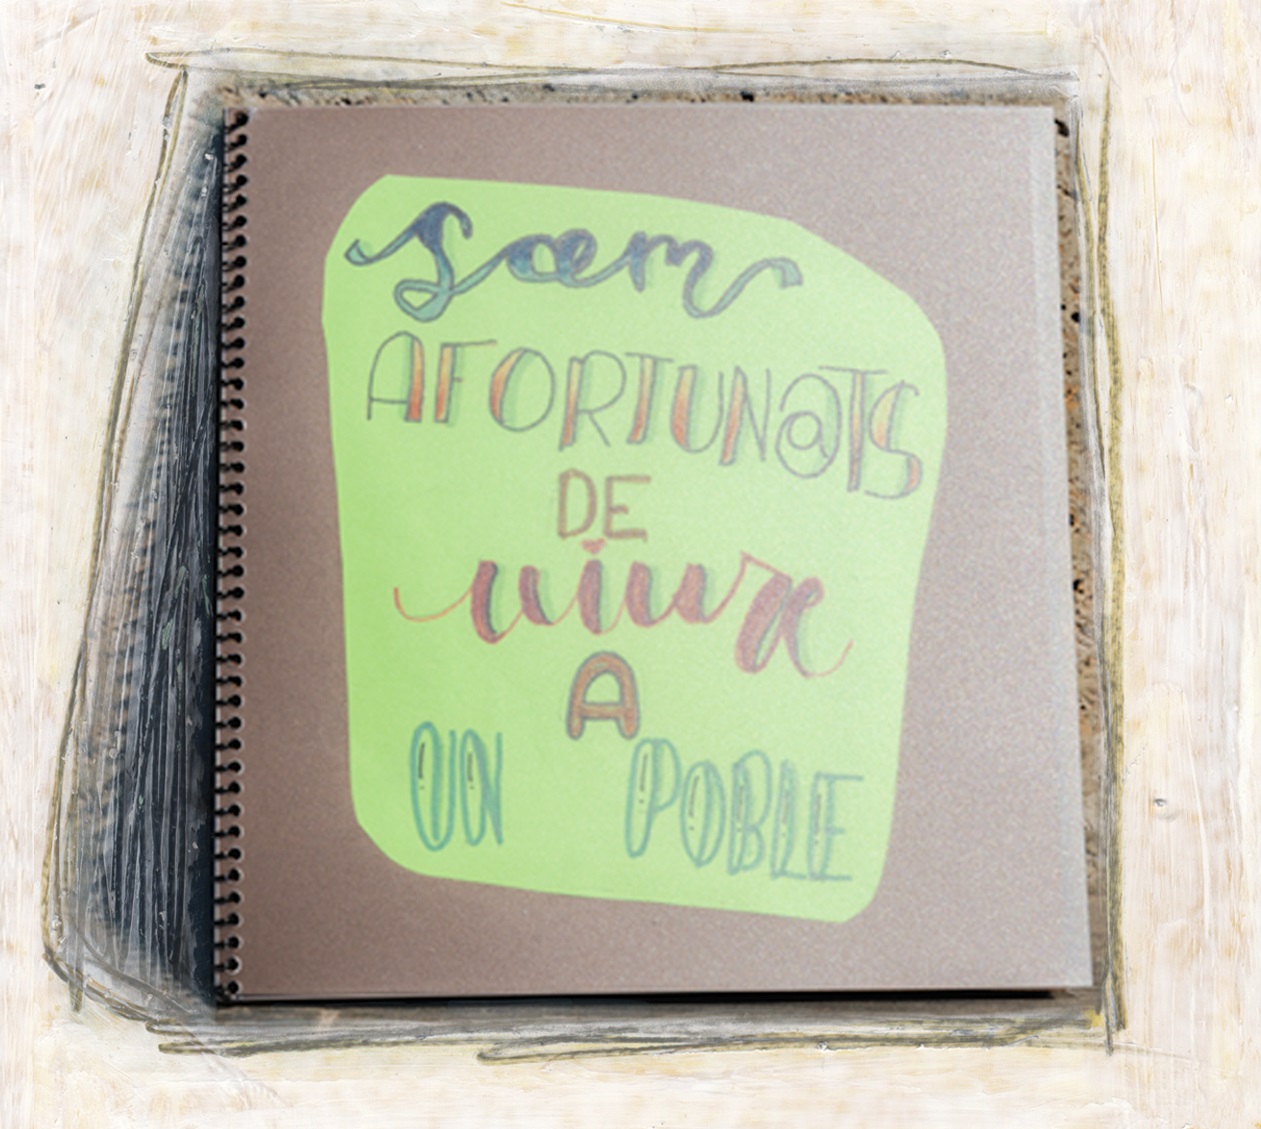 Som
AFORTUN@TS
DE
viure
A
UN POBLE